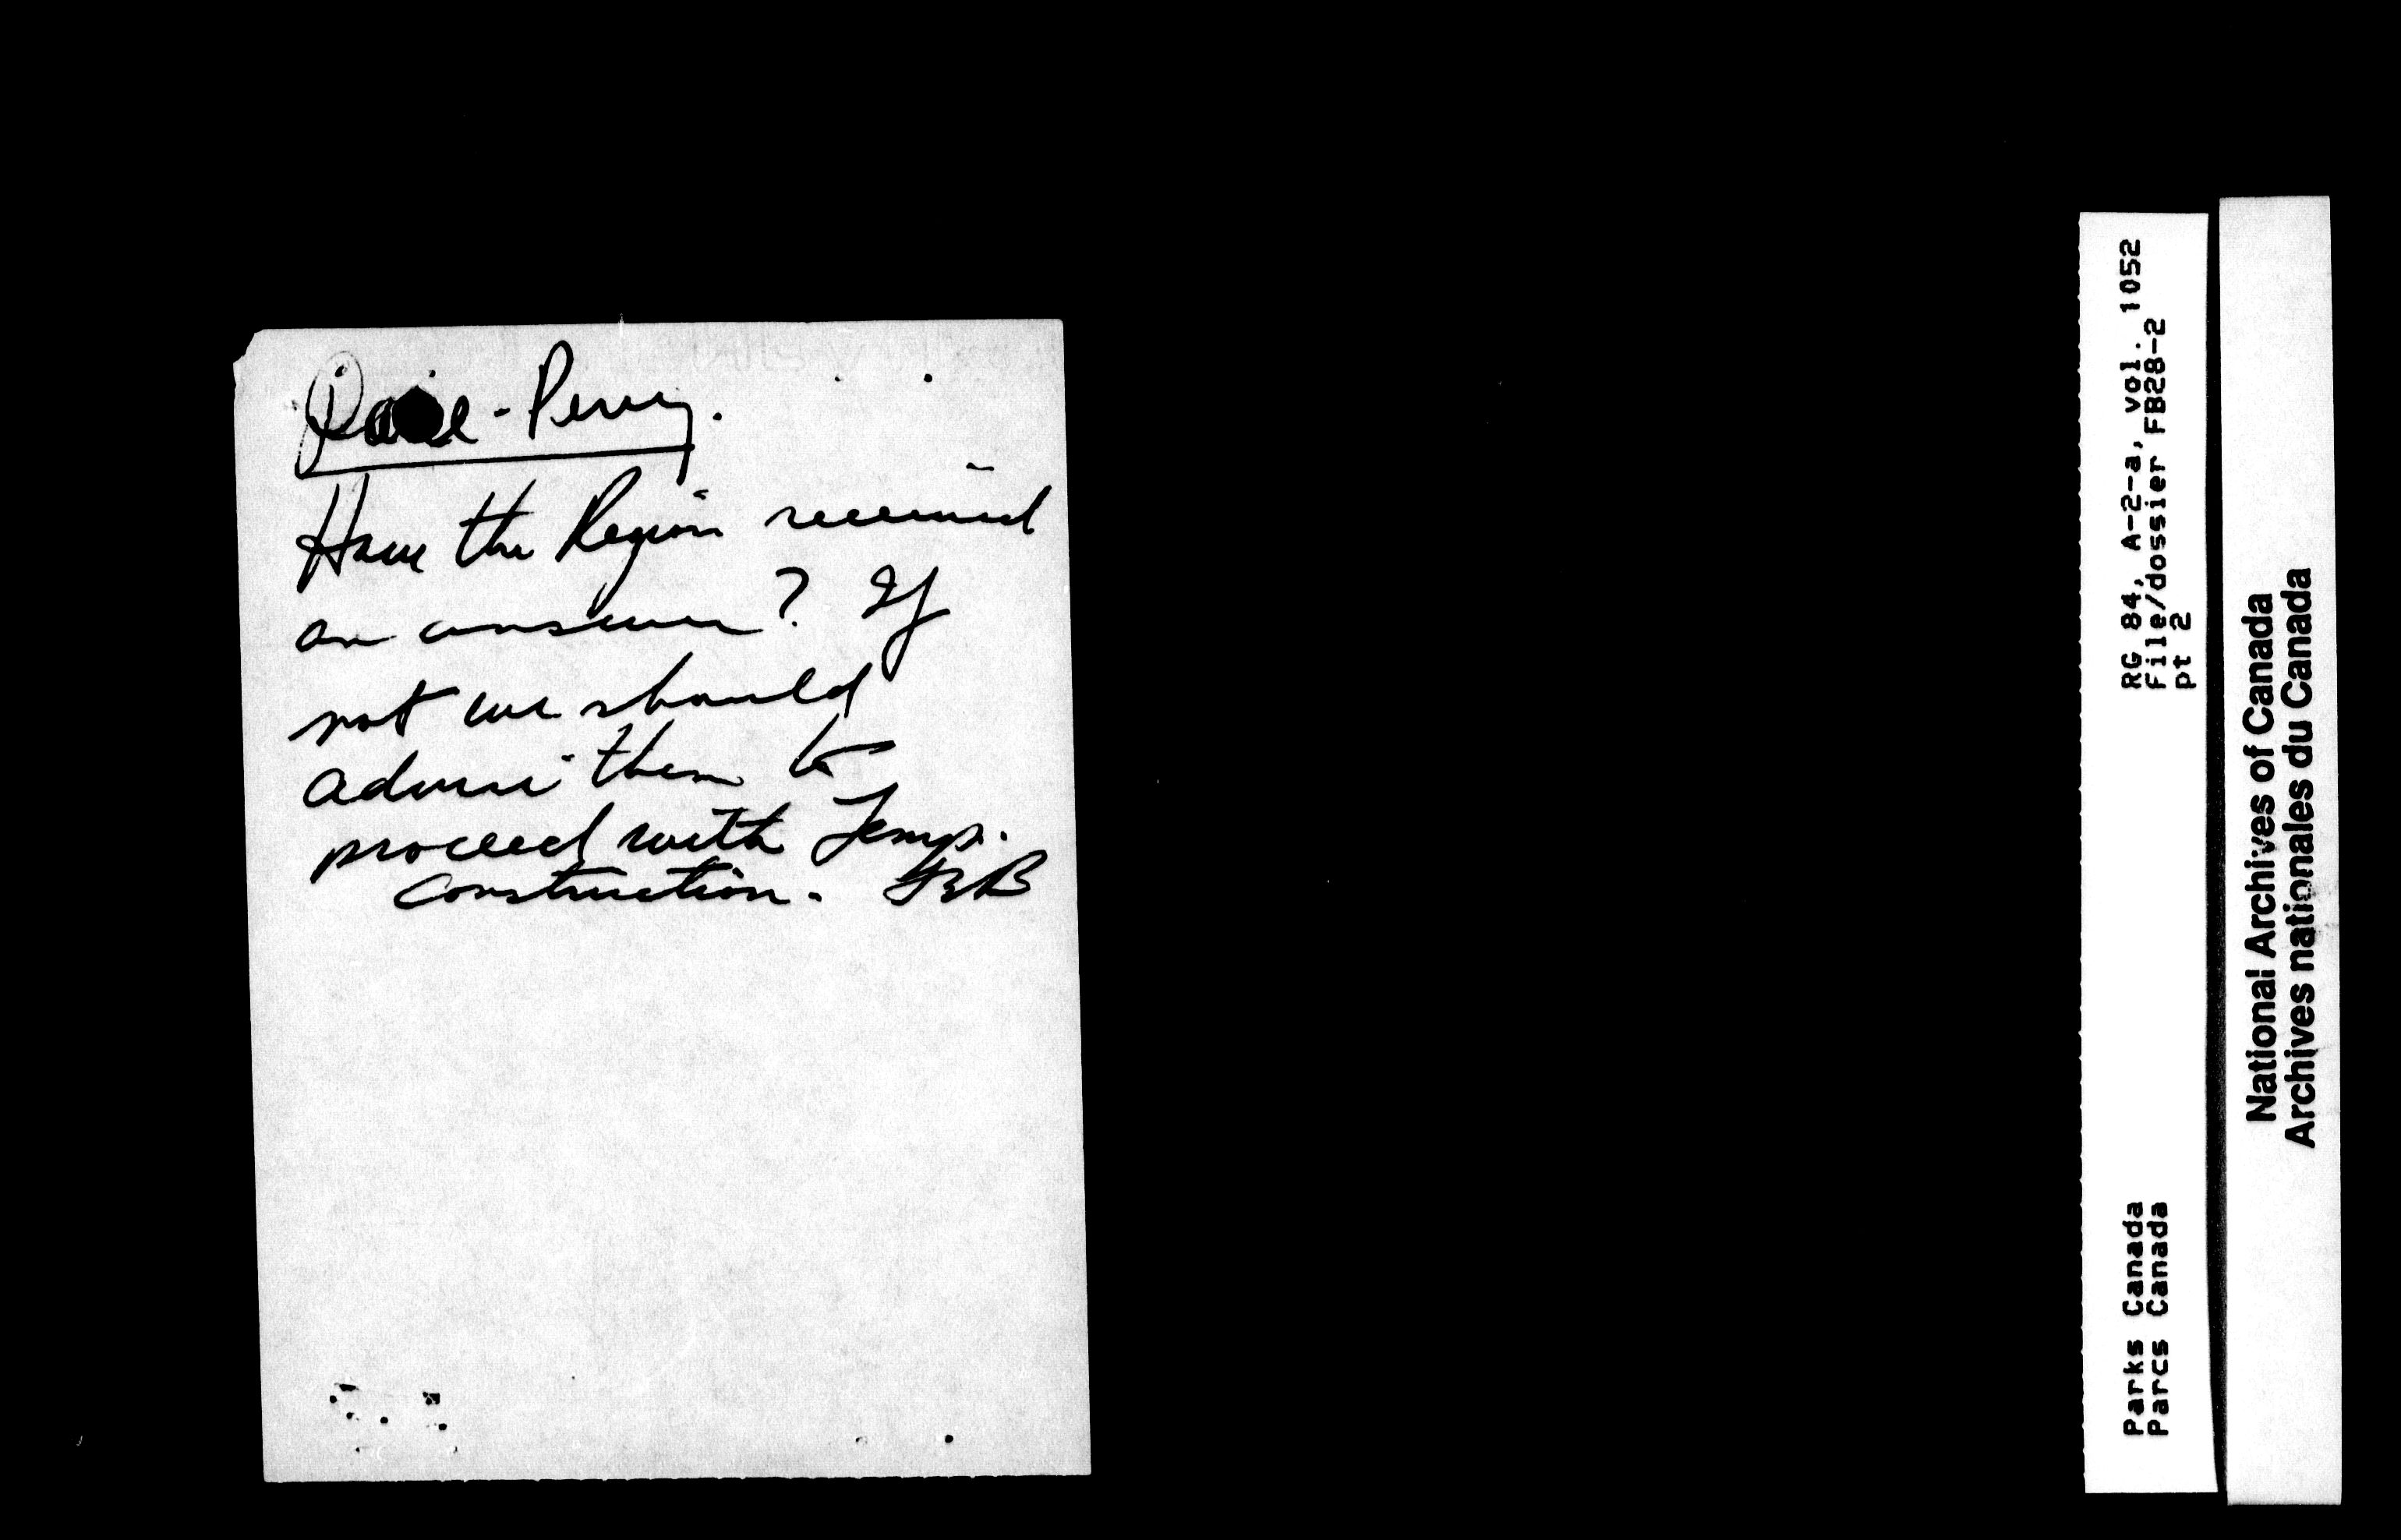 - Perry.
Have the Region received
an answer? If
not we should
advise them to
proceed with Temp.
construction.
RG 84, A-2-a, vol. 1052
File/dossier FB28-2
pt 2
Parks Canada
Parcs Canada
National Archives of Canada
Archives nationales du Canada